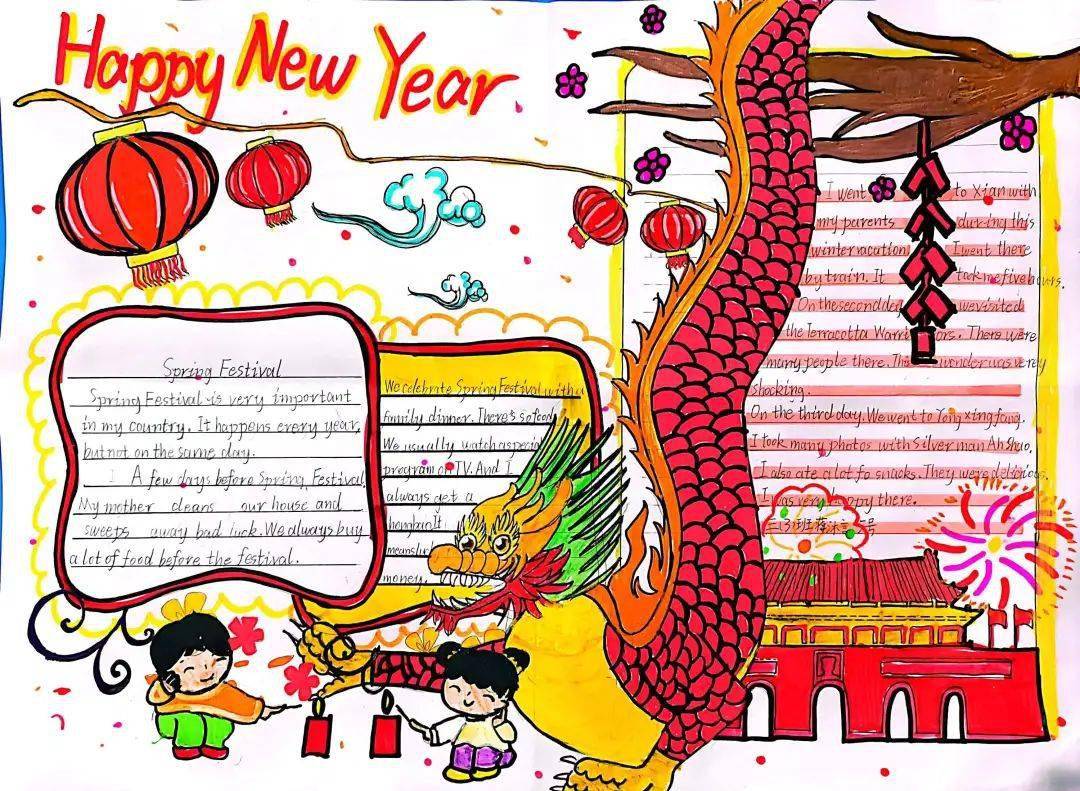 Happy New Year
Spring Festival
Spring Festival is very important
in my country. It happens every year,
but not on the same day.
A few days before Spring Festival
My mother cleans our house and
sweeps away bad luck. We always buy
a lot of food before the festival.
We celebrate Spring Festival with a
family dinner. There's so food
We usually watch a special
program on TV. And I
always get a
hongbao It
means lucky
money.
I went to Xian with
my parents during this
winter vacation I went there
by train. It took me five hours.
On the second we visited
the Terracotta Warriors. There were
many people there. This wonder was very
shocking.
On the third day. We went to Tong xing fang.
I took many photos with Silver man Ah Shuo.
I also ate a lot fo snacks. They were delicious.
I was very happy there.